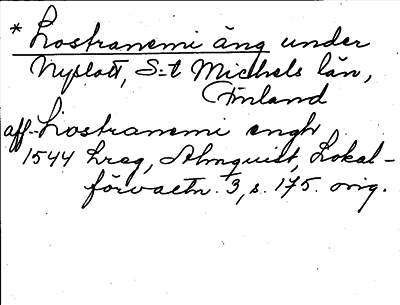 * Lostranemi äng under
Nyslott, S:t Michels län,
Finland
aff. Liostranemi engh
1544 hreg, Almquist, Lokal-
förvaltn. 3, s. 175. orig.